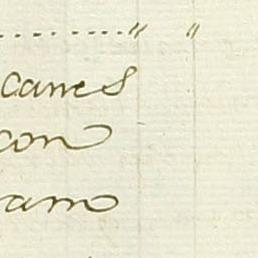 ..........." "
canes
con
amo